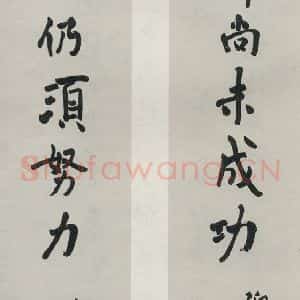 尚未成功
仍須努力
Shufawang.CN